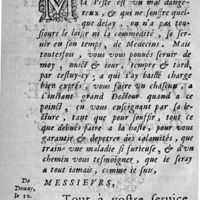 la Peste est un mal dange-
reux, & qui ne souffre quel-
que delay, on n'a pas tou-
siours le loisir ni la commodité, se ser-
uir en son temps, de Medecins. Mais
toutesfois, vous vous pouués seruir de
moy, nuict & iour, tempre & tard,
par cestuy-cy, a qui t'ay baillé charge
bien expres, vous faire un chascun, a
l'instant grand Docteur quand à ce
poinct, en vous enseignant par la le-
cture, que pour soudain faut tout ce
que debués faire a la haste, pour vous
garantir, & depetrer des calamités, que
train vne maladie si furieuse, & d'un
chemin vous tesmoigner, que ie seray
a tout iamais, comme ie suis,
MESSIEVRS,
De
Douay,
le 12.
Tout à vostre seruice